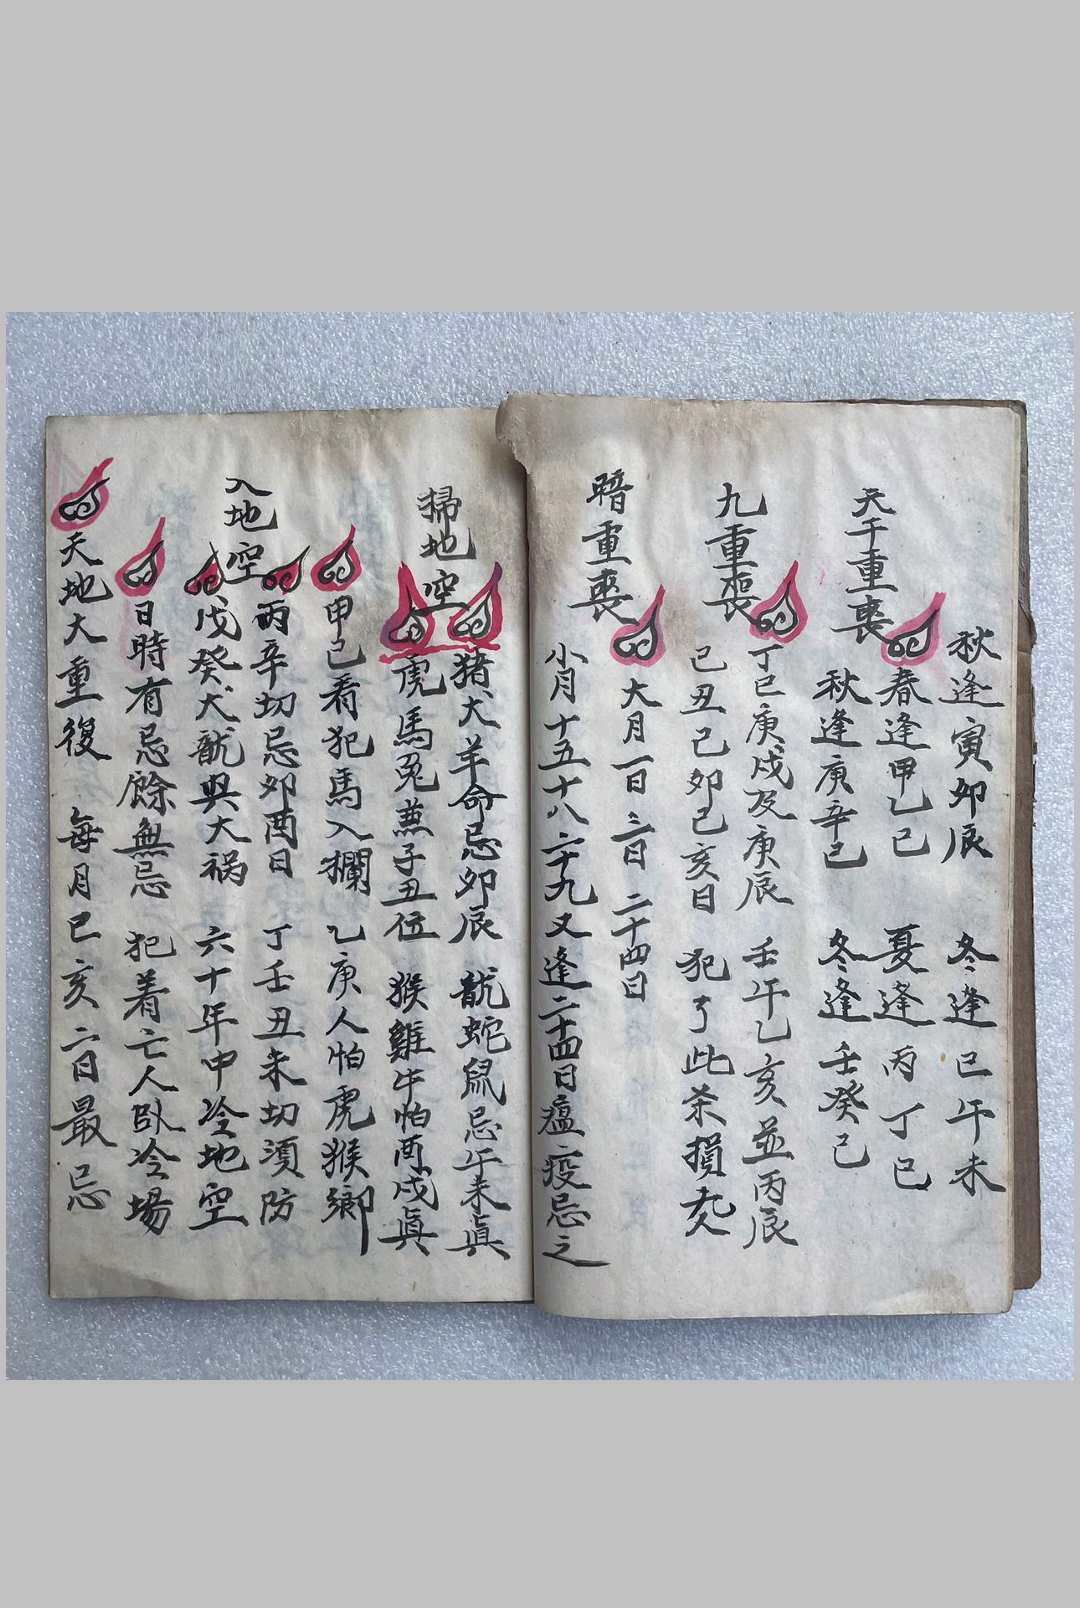 秋逢寅卯辰 冬逢巳午未
天干重喪
春逢甲乙己 夏逢丙丁己
秋逢庚辛己 冬逢壬癸己
九重喪
丁巳庚戌及庚辰 壬午乙亥並丙辰
己丑己卯己亥日 犯了此杀損
暗重喪
大月一日三日二十四日
小月十五十八二十九又逢二十四日瘟疫忌之
掃地空
猪犬羊命忌卯辰 龍蛇鼠忌午未真
虎馬兔兼子丑位 猴雞牛怕酉戌真
甲己看犯馬入欄 乙庚人怕虎猴鄉
入地空
丙辛切忌卯酉日 丁壬丑未切須防
戊癸犬龍與大祸 六十年中冷地空
日時有忌餘無忌 犯着亡人臥冷場
天地大重復 每月巳亥二日最忌